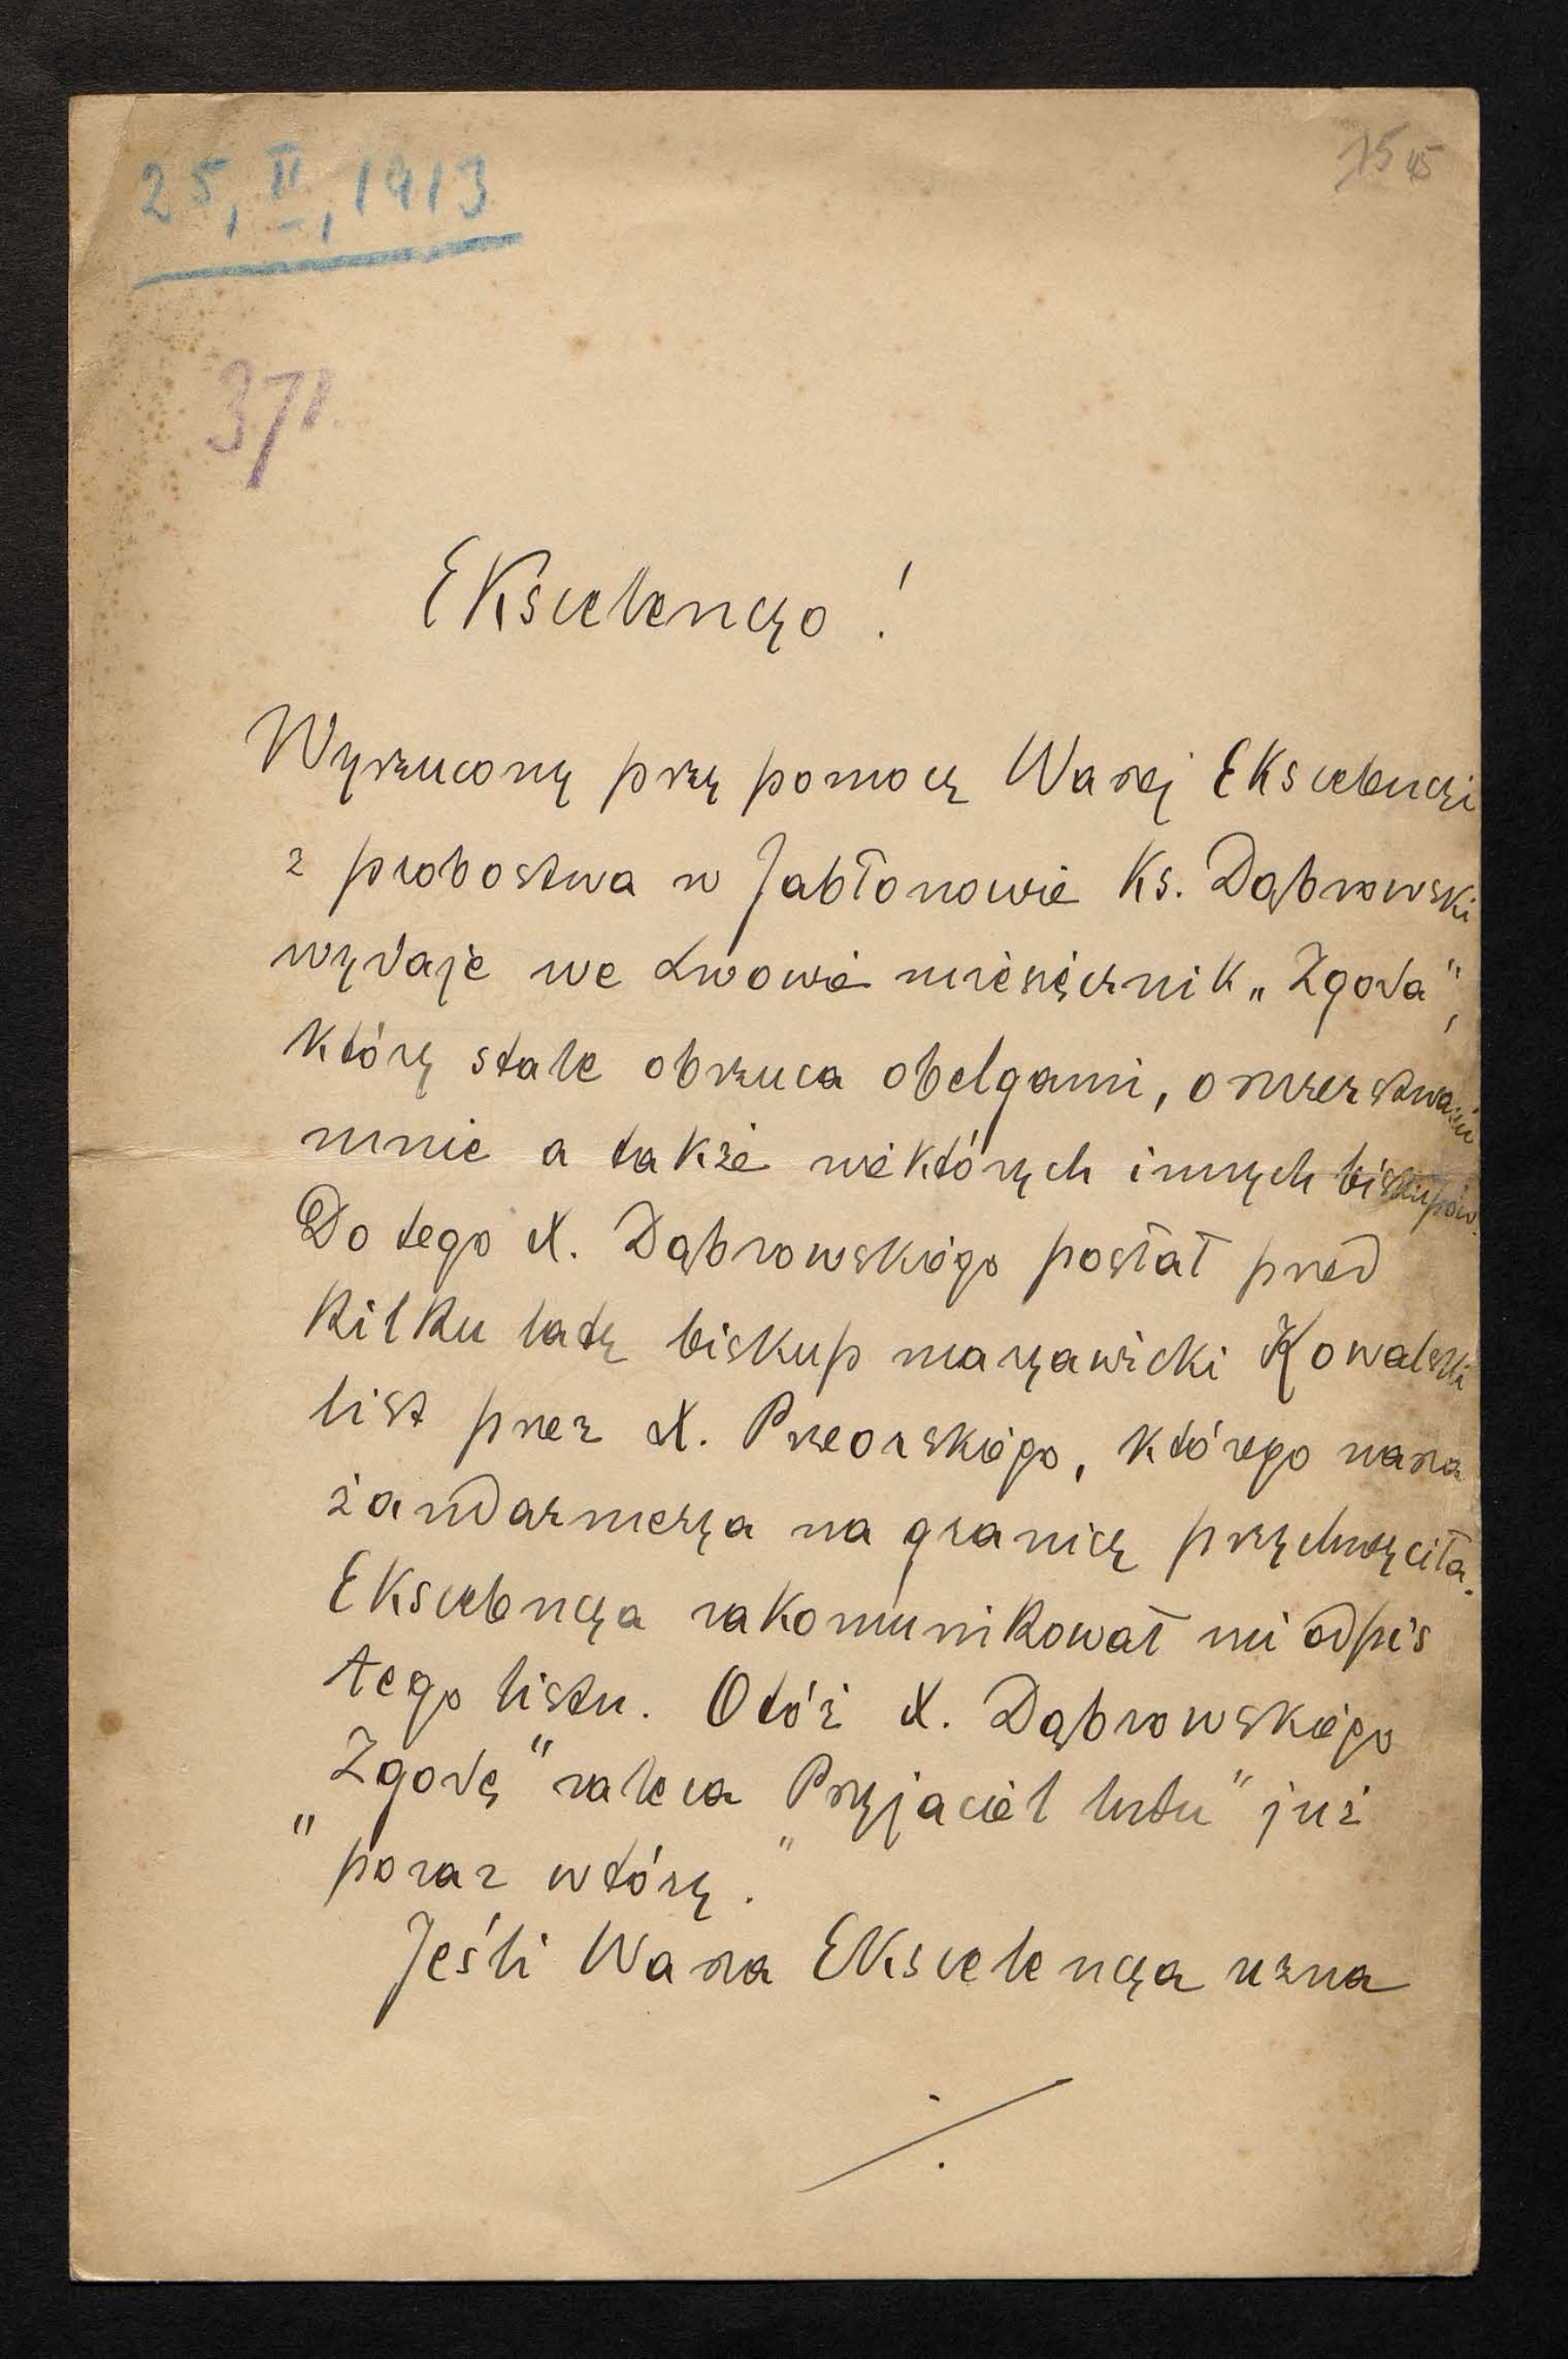 25, II, 1913
75 45
371.
Ekscelencyo!
Wyrzucony przy pomocy Waszej Ekscelencyi
z probostwa w Jabłonowie Ks. Dąbrowski
wydaje we Lwowie miesięcznik „Zgoda",
który stale obrzuca obelgami, oszczerstwami
mnie a także niektórych innych biskupów.
Do tego X. Dąbrowskiego posłał przed
kilku laty biskup maryawicki Kowalski
list przez X. Przeorskiego, którego nasza
żandarmerya na granicy przychwyciła.
Ekscelencya zakomunikował mi odpis
tego listu. Otóż X. Dąbrowskiego
„Zgodę" zaleca „Przyjaciel ludu" już
poraz wtóry.
Jeśli Wasza Ekscelencya uzna
./.